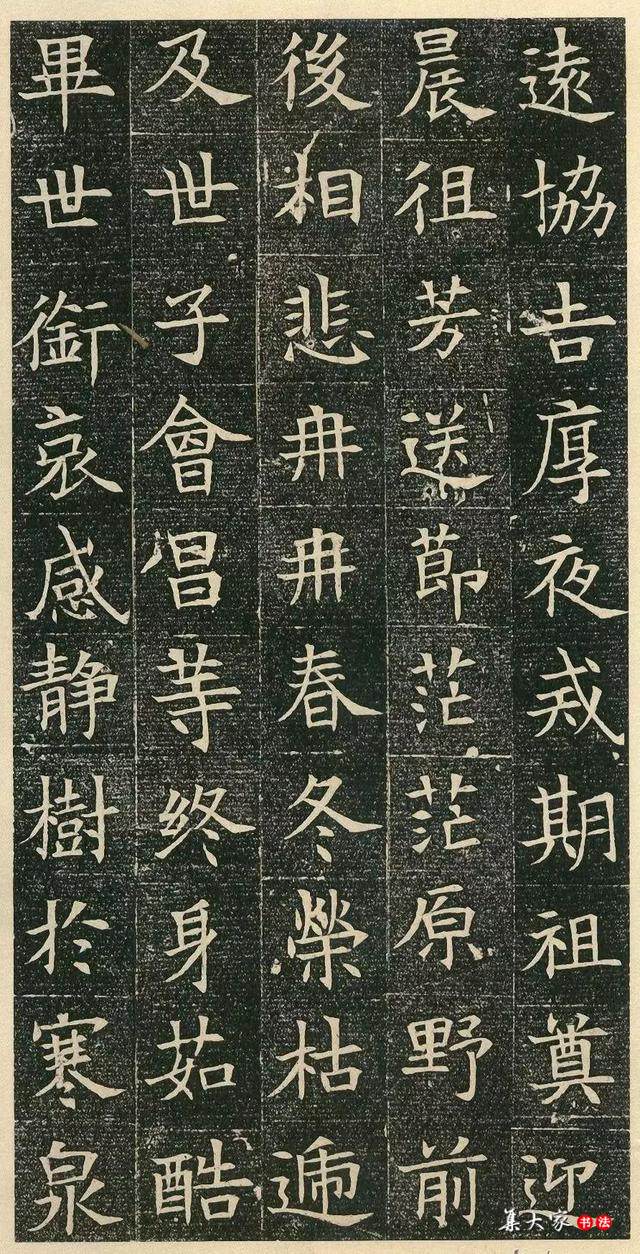 遠協吉厚夜戒期祖奠迎
晨徂芳送節茫茫原野前
後相悲冉冉春冬榮枯遞
及世子會昌等終身茹酷
畢世銜哀感静樹於寒泉
集大家书法